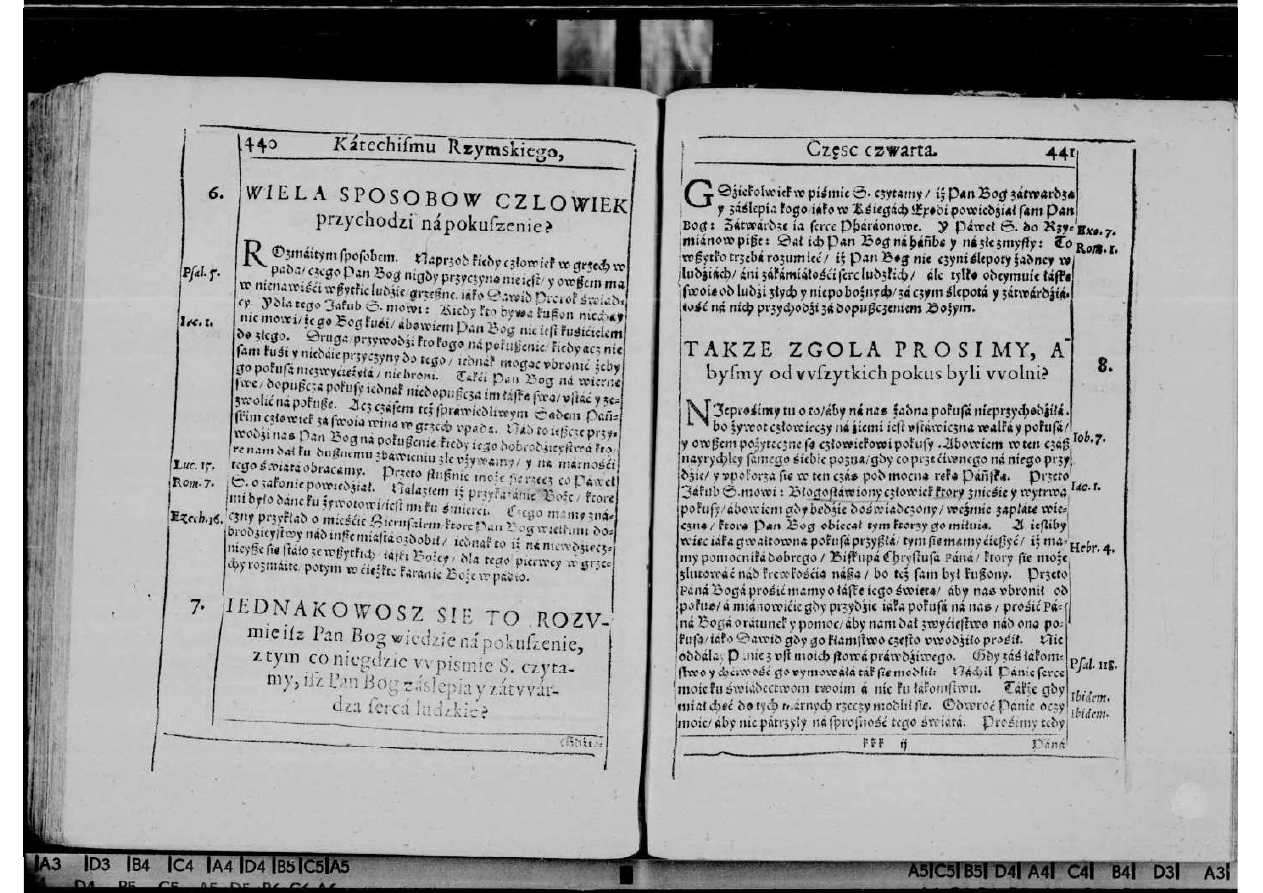 440 Kátechiſmu Rzymskiego,
6. WIELA SPOSOBOW CZLOWIEK
przychodzi ná pokuſzenie?
ROzmáitym sposobem. Naprzod kiedy człowiek w grzech w
Pſal. 5. pada/ czego Pan Bog nigdy przyczyną nie ieſt/ y owßem ma
w nienawiśći wßytkie ludzie grzeßne, iáko Dawid Prorok świad-
cy. Y dla tego Jakub S. mowi: Kiedy kto bywa kußon niechay
Iac. 1. nie mowi/ że go Bog kuśi/ ábowiem Pan Bog nie ieſt kuśićielem
do złego. Druga/ przywodźi kto kogo ná pokußenie/ kiedy acz nie
sam kuśi y niedáie przyczyny do tego/ iednak mogąc obronić żeby
go pokusá niezwyćiężyłá/ niebroni. Takći Pan Bog ná wierne
swe/ dopußcza pokusy iednak niedopußcza im łáską swą/ vſtáć y ze-
zwolić ná pokusę. Acz czásem też spráwiedliwym Sądem Pań-
skim człowiek zá swoią winą w grzech vpada. Nád to ießcze przy-
wodzi nas Pan Bog ná pokußenie, kiedy iego dobrodzieyſtwá kto-
re nam dał ku dußnemu zbáwieniu źle vżywamy/ y ná márnośći
Luc. 15. tego świátá obracamy. Przeto słußnie może się rzecz co Páweł
Rom. 7. S. o zakonie powiedźiał. Nálazłem iż przykazánie Boże/ ktore
mi było dáne ku żywotowi/ ieſt mi ku śmierći. Czego mamy zná-
Ezech. 16. czny przykład o mieśćie Hierusalem ktore Pan Bog wielkimi do-
brodzieyſtwy nád inße miáſtá ozdobił/ iednak to iż ná niewdźięcz-
nieyße się sſtáło ze wßytkich/ łáski Bożey/ dla tego pierwey w grze-
chy rozmáite/ potym w ćięßkie karánie Boże wpádło.
7. IEDNAKOWOSZ SIE TO ROZV-
mie iſz Pan Bog wiedzie ná pokuſzenie,
z tym co niegdzie vv piśmie S. czyta-
my, iſz Pan Bog záslepia y zátvvár-
dza ſercá ludzkie?
Gdźie-
Częsc czwarta. 441
GDźiekolwiek w piśmie S. czytamy/ iż Pan Bog zátwardza
y záślepia kogo iáko w Kśięgách Exodi powiedźiał sam Pan
Bog: Zátwárdzę ia serce Pháráonowe. Y Páweł S. do Rzy- Exo. 7.
miánow piße: Dał ich Pan Bog ná háńbę y ná złe zmysły: To Rom. 1.
wßytko trzebá rozumieć/ iż Pan Bog nie czyni ślepoty żadney w
ludźiách/ áni zákámiáłośći serc ludzkich/ ále tylko odeymuie łáskę
swoię od ludźi złych y niepobożnych/ zá czym ślepotá y zátwárdźia-
łość ná nich przychodźi zá dopußczeniem Bożym.
TAKZE ZGOLA PROSIMY, A-
byſmy od vvſzytkich pokus byli vvolni? 8.
NJeprośimy tu o to/ áby ná nas żadna pokusá nieprzychodźiłá.
bo żywot człowieczy ná źiemi ieſt vſtáwiczna walká y pokusá/
y owßem pożyteczne są człowiekowi pokusy. Abowiem w ten czás Iob. 7.
nayrychley sámego śiebie pozna/ gdy co przećiwnego ná niego przy
dźie/ y vpokorza się w ten czás pod mocną ręką Páńską. Przeto
Jakub S. mowi: Błogosłáwiony człowiek ktory znieśie y wytrwa Iac. 1.
pokusy/ ábowiem gdy będźie doświádczony/ weźmie zapłátę wie-
czną/ ktorą Pan Bog obiecał tym ktorzy go miłuią. A ieſliby
więc iáka gwałtowna pokusá przyßłá/ tym się mamy ćießyć/ iż má-
my pomocniká dobrego/ Biſkupá Chryſtusá Páná/ ktory się może Hebr. 4.
zlutowáć nád krewkośćią náßą/ bo też sam był kußony. Przeto
Páná Bogá prośić mamy o łáskę iego świętą/ áby nas obronił od
pokus/ á miánowićie gdy przydźie iáka pokusá ná nas/ prośić Pá-
ná Bogá o rátunek y pomoc/ áby nam dał zwyćięſtwo nád oną po-
kusą/ iáko Dawid gdy go kłamſtwo często vwodźiło prośił. Nie
oddalay Pánie z vſt moich słowá prawdźiwego. Gdy záś łákom- Pſal. 118.
ſtwo y chćiwość go vymowałá tak się modlił: Náchil Pánie serce
moie ku świádectwom twoim á nie ku łákomſtwu. Tákże gdy Ibidem.
miał chęć do tych márnych rzeczy modlił się. Odwroć Pánie oczy ibidem.
moie/ áby nie pátrzyły ná sprosność tego świátá. Prośimy tedy
kkk ij Páná